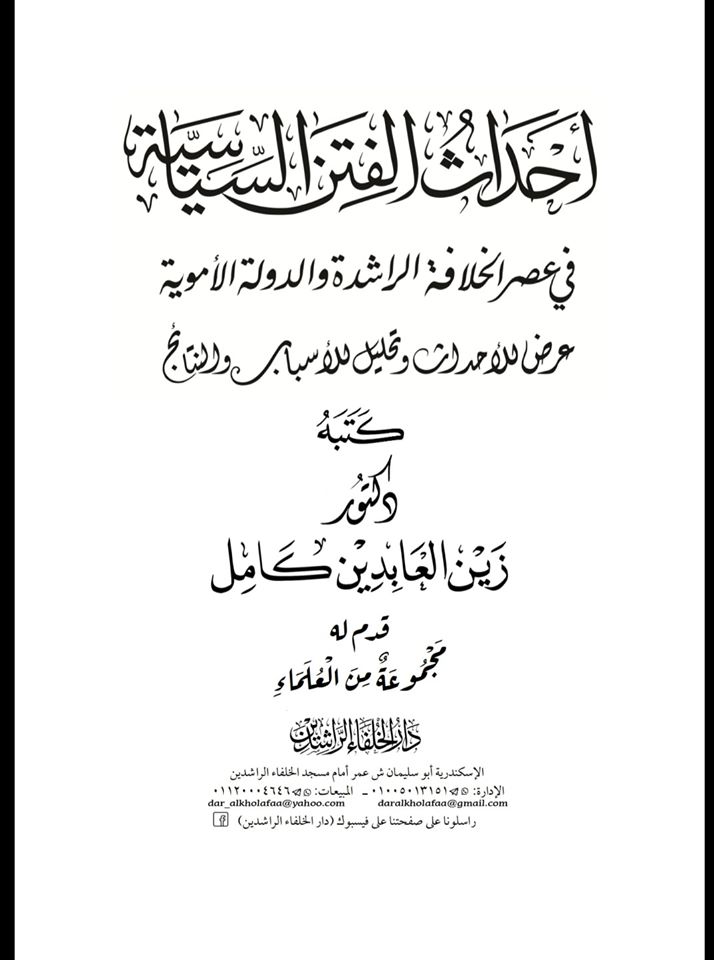 أَحْدَاثُ الفِتَنِ السِّيَاسِيَّةِ
في عصر الخلافة الراشدة والدولة الأموية
عرض للأحداث وتحليل للأسباب والنتائج
كَتَبَهُ
دكتُور
زَيْن العَابِدِيْن كَامِل
قدم له
مَجْمُوعَةٌ مِنَ الْعُلَمَاءِ
دَارُ الخُلَفَاءِ الرَّاشِدِينَ
الإسكندرية أبو سليمان ش عمر أمام مسجد الخلفاء الراشدين
الإدارة: ٠١٠٠٥٠١٣١٥١ ـ المبيعات: ٠١١٢٠٠٠٤٦٤٦
daralkholafaa@gmail.com dar_alkholafaa@yahoo.com
راسلونا على صفحتنا على فيسبوك (دار الخلفاء الراشدين)